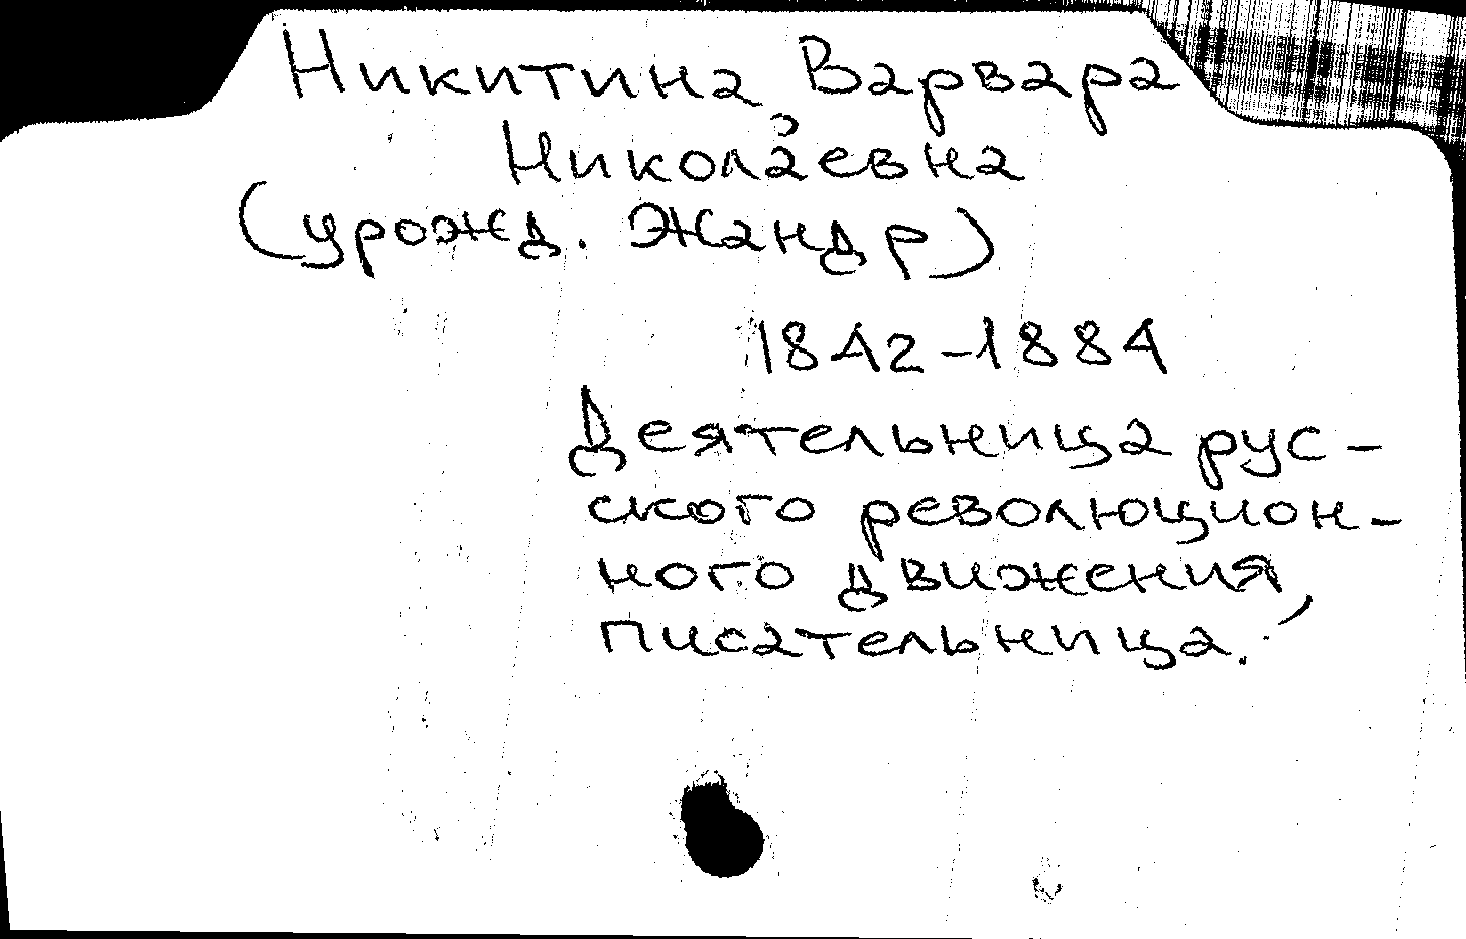 Никитина Варвара
Николаевна
(урожд. Жандр)
1842-1884
Деятельница рус-
ского революцион-
ного движения,
писательница.